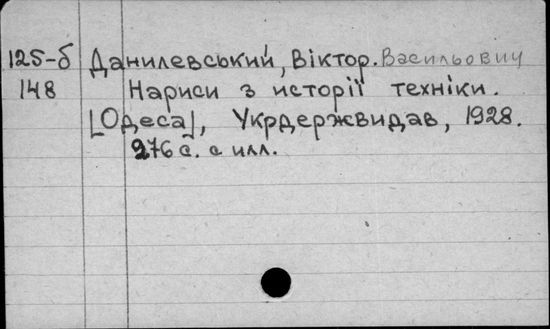 125-б Данилевський, Віктор. Васильович
148 Нариси з історії техніки.
[Одеса], Укрдержвидав, 1928.
276 с. с илл.